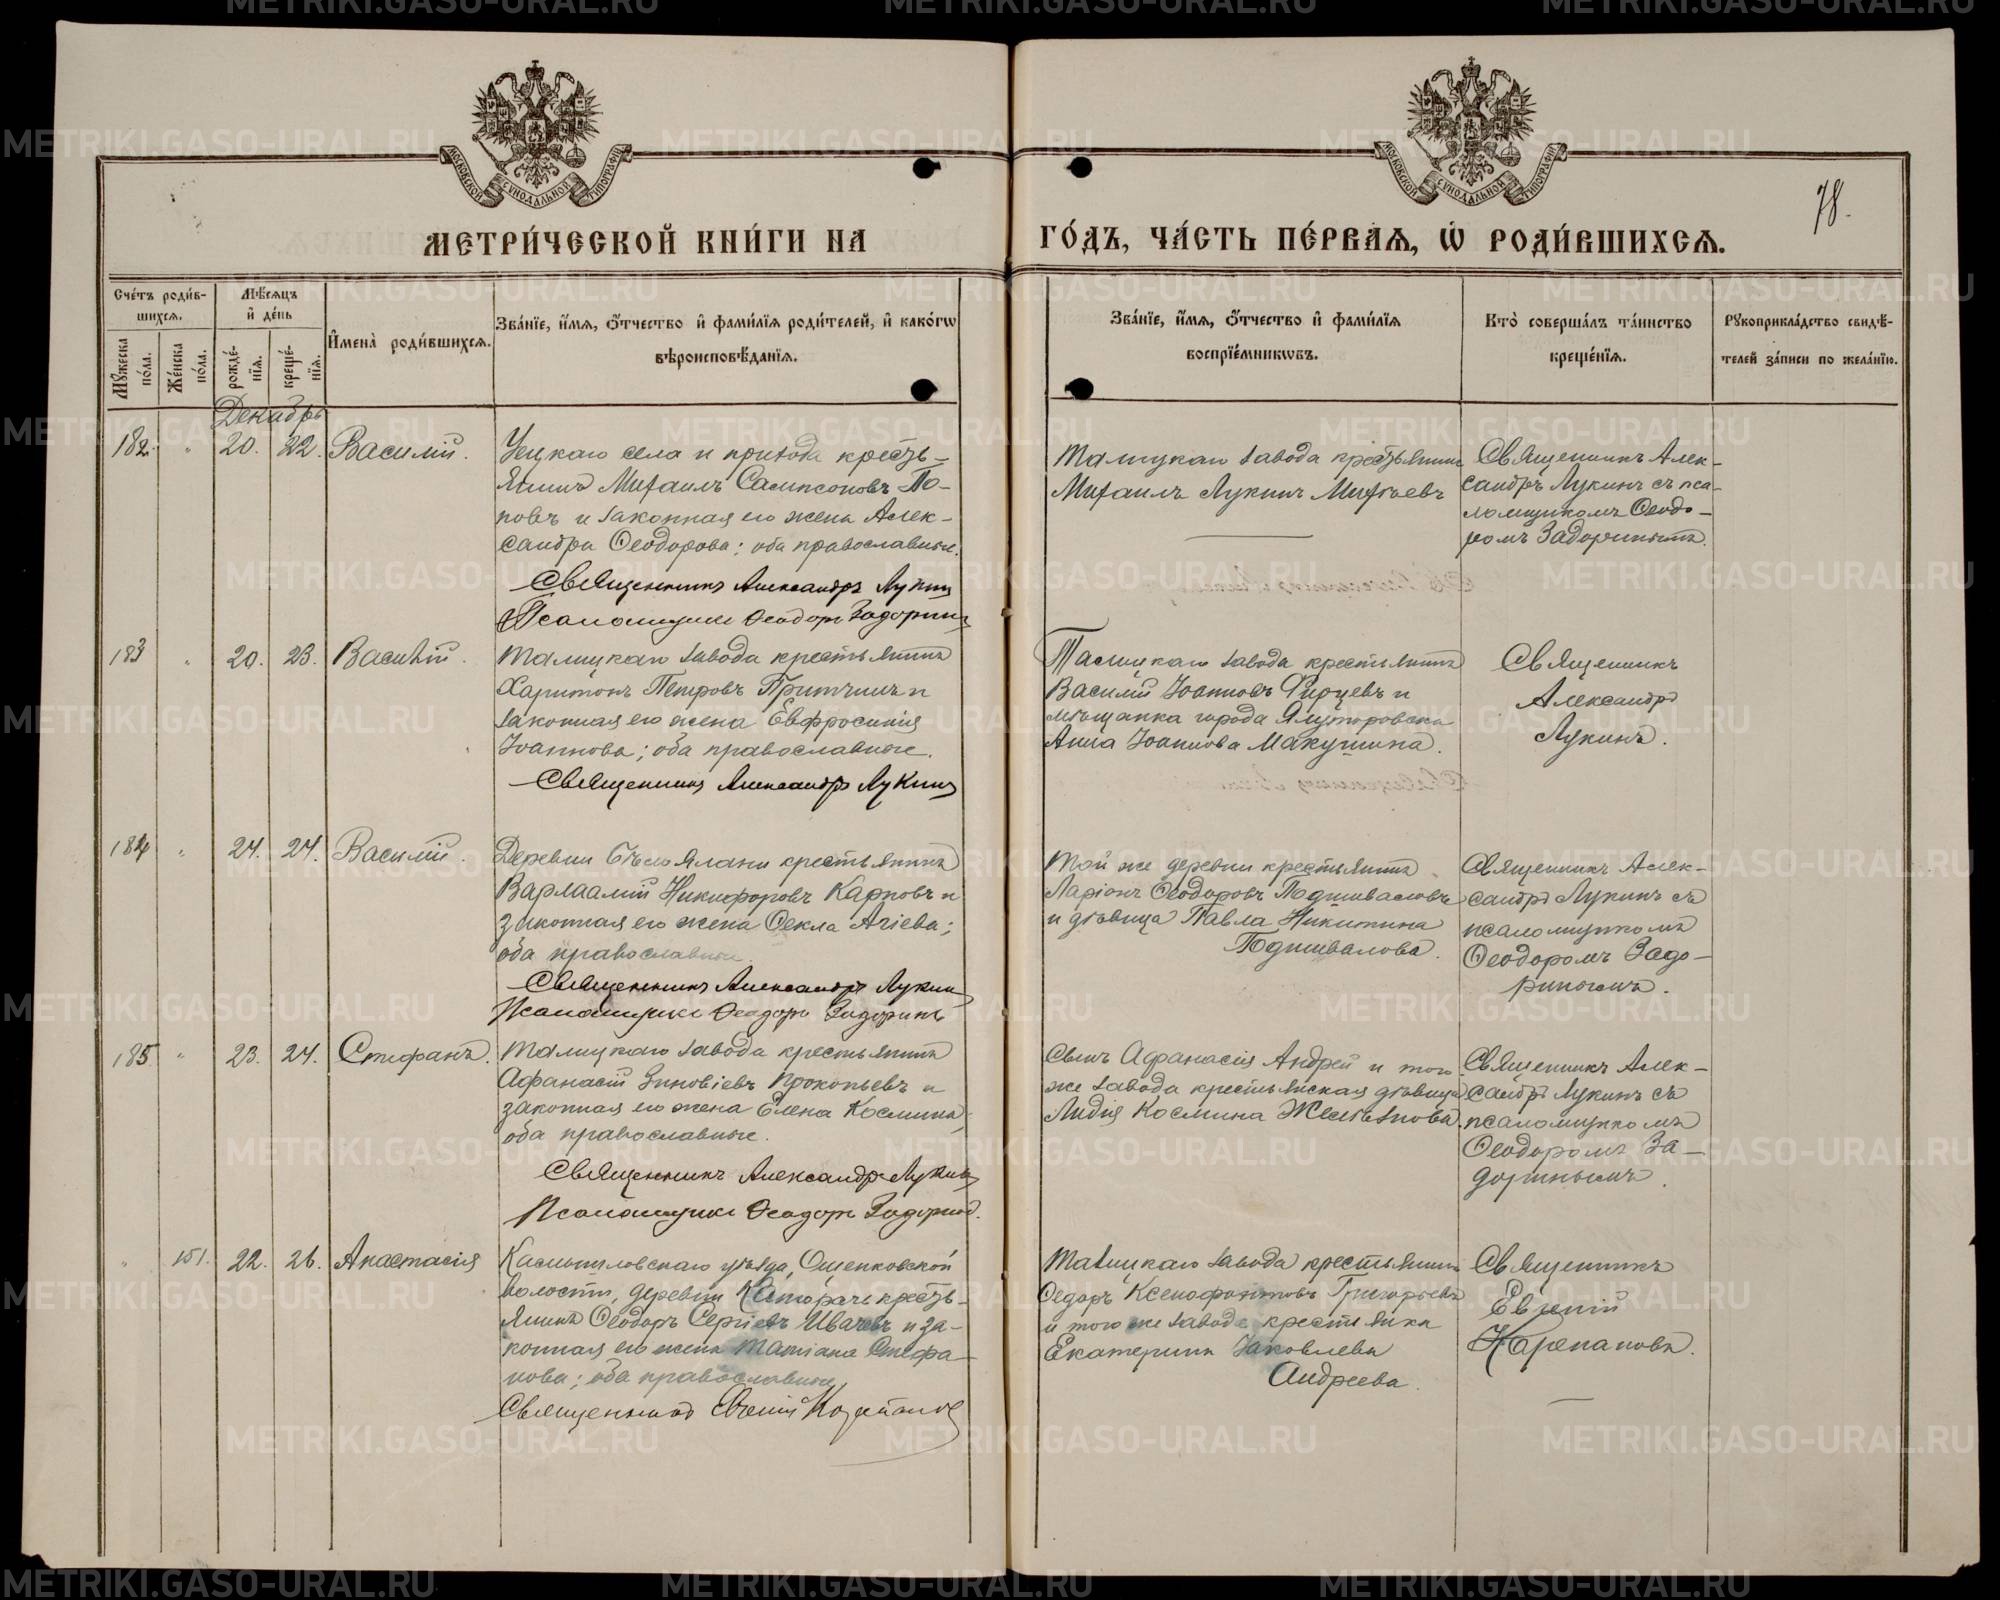 МОСКОВСКОЙ СѴНОДАЛЬНОЙ ТИПОГРАФІИ
МОСКОВСКОЙ СѴНОДАЛЬНОЙ ТИПОГРАФІИ
78.
МЕТРИ́ЧЕСКОЙ КНИ́ГИ НА ГО́ДЪ, ЧА́СТЬ ПЕ́РВАѦ, Ѡ҆ РОДИ́ВШИХСѦ.
Сче́тъ роди́в-
шихсѧ.
Мѣ́сѧцъ
и҆ де́нь
Мꙋ́жеска по́ла.
Же́нска по́ла.
рожде́нїѧ.
креще́нїѧ.
И҆мена̀ роди́вшихсѧ.
Зва́нїе, и҆́мѧ, ѻ҆́тчество и҆ фами́лїѧ роди́телей, и҆ како́гѡ
вѣроисповѣ́данїѧ.
Зва́нїе, и҆́мѧ, ѻ҆́тчество и҆ фами́лїѧ
воспрїе́мникѡвъ.
Кто̀ соверша́лъ та́инство
креще́нїѧ.
Рꙋкоприкла́дство свидѣ́-
телей за́писи по жела́нїю.
Декабрь
182. " 20. 22. Василій.
Уецкаго села и прихода кресть-
янинъ Михаилъ Сампсоновъ По-
повъ и законная его жена Алек-
сандра Ѳеодорова; оба православные.
Священникъ Александръ Лукинъ
Псаломщикъ Ѳеодоръ Задоринъ
Талицкаго завода крестьянинъ
Михаилъ Лукинъ Михѣевъ
Священникъ Алек-
сандръ Лукинъ съ пса-
ломщикомъ Ѳеодо-
ромъ Задоринымъ.
183 " 20. 23. Василій.
Талицкаго завода крестьянинъ
Харитонъ Петровъ Притчинъ и
законная его жена Евфросинія
Іоаннова; оба православные.
Священникъ Александръ Лукинъ
Талицкаго завода крестьянинъ
Василій Іоанновъ Фирцевъ и
мѣщанка города Ялуторовска
Анна Іоаннова Макушина.
Священникъ
Александръ
Лукинъ.
184 " 24. 24. Василій.
Деревни Бѣло Ялани крестьянинъ
Варлаамій Никифоровъ Карповъ и
законная его жена Ѳекла Агіева;
оба православные.
Священникъ Александръ Лукинъ
Псаломщикъ Ѳеодоръ Задоринъ
Той же деревни крестьянинъ
Ларіонъ Ѳеодоровъ Подшиваловъ
и дѣвица Павла Никитина
Подшивалова.
Священникъ Алек-
сандръ Лукинъ съ
псаломщикомъ
Ѳеодоромъ Задо-
ринымъ.
185 " 23. 24. Стефанъ.
Талицкаго завода крестьянинъ
Афанасій Зиновіевъ Прокопьевъ и
законная его жена Елена Космина;
оба православные.
Священникъ Александръ Лукинъ
Псаломщикъ Ѳеодоръ Задоринъ.
Сынъ Афанасія Андрей и того
же завода крестьянская дѣвица
Лидія Космина Желѣзнова.
Священникъ Алек-
сандръ Лукинъ съ
псаломщикомъ
Ѳеодоромъ За-
доринымъ.
" 151. 22. 26. Анастасія
Камышловскаго уѣзда, Ощепковской
волости, деревни Каторачъ кресть-
янинъ Ѳеодоръ Сергіевъ Ивачевъ и за-
конная его жена Татіана Стефа-
нова; оба православные
Священникъ Евгеній Карепановъ
Талицкаго завода крестьянинъ
Ѳедоръ Ксенофонтовъ Григорьевъ
и того же завода крестьянка
Екатерина Іаковлева
Андреева.
Священникъ
Евгеній
Карепановъ.
METRIKI.GASO-URAL.RU